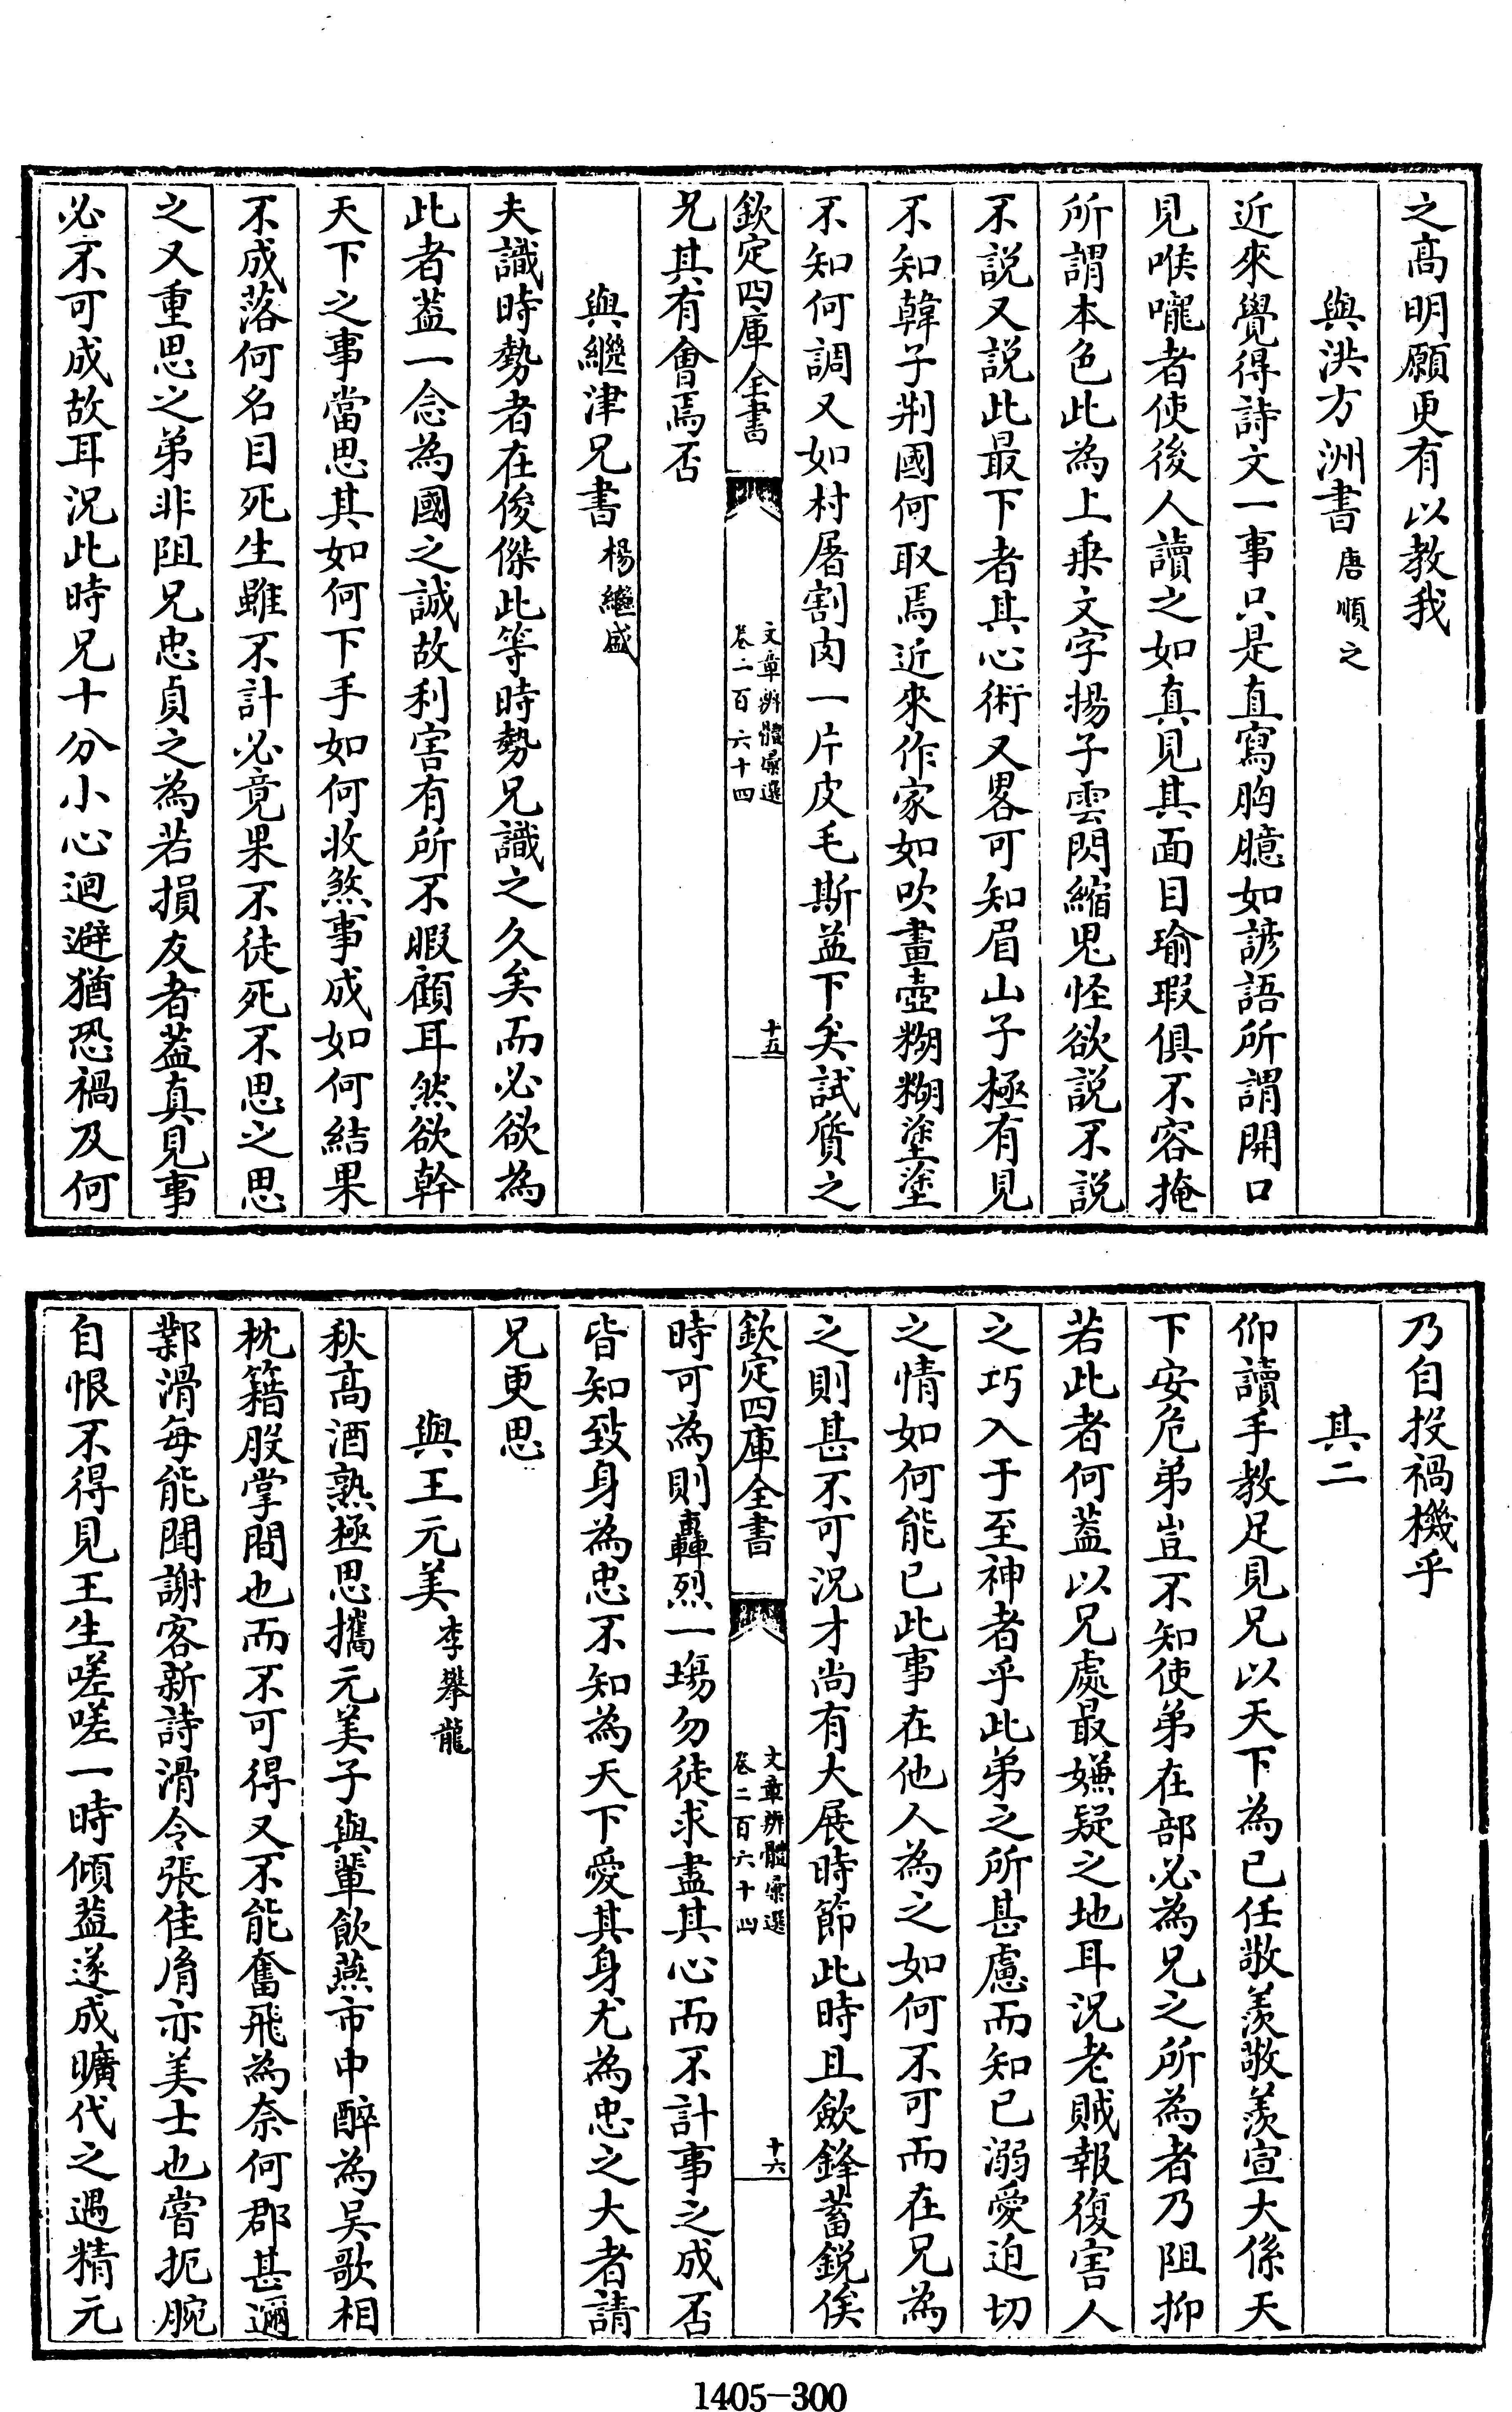 之髙明願更有以教我
與洪方洲書唐順之
近來覺得詩文一事只是直寫胸臆如諺語所謂開口
見喉嚨者使後人讀之如真見其面目瑜瑕俱不容掩
所謂本色此為上乘文字揚子雲閃縮鬼怪欲説不説
不説又説此最下者其心術又畧可知眉山子極有見
不知韓子荆國何取焉近來作家如吹畫壺糊糊塗塗
不知何調又如村屠割肉一片皮毛斯益下矣試質之
欽定四庫全書
文章辨體彚選
卷二百六十四
十五
兄其有會焉否
與繼津兄書楊繼盛
夫識時勢者在俊傑此等時勢兄識之久矣而必欲為
此者葢一念為國之誠故利害有所不暇顧耳然欲幹
天下之事當思其如何下手如何收煞事成如何結果
不成落何名目死生雖不計必竟果不徒死不思之思
之又重思之弟非阻兄忠貞之為若損友者葢真見事
必不可成故耳況此時兄十分小心迴避猶恐禍及何
乃自投禍機乎
其二
仰讀手教足見兄以天下為己任敬羨敬羨宣大係天
下安危弟豈不知使弟在部必為兄之所為者乃阻抑
若此者何葢以兄處最嫌疑之地耳況老賊報復害人
之巧入于至神者乎此弟之所甚慮而知已溺愛迫切
之情如何能已此事在他人為之如何不可而在兄為
之則甚不可況才尚有大展時節此時且歛鋒蓄鋭俟
欽定四庫全書
文章辨體彚選
卷二百六十四
十六
時可為則轟烈一塲勿徒求盡其心而不計事之成否
皆知致身為忠不知為天下愛其身尤為忠之大者請
兄更思
與王元美李攀龍
秋髙酒熟極思攜元美子與輩飲燕市中醉為吳歌相
枕籍股掌間也而不可得又不能奮飛為奈何郡甚邇
鄴滑每能聞謝客新詩滑令張佳𦙍亦美士也嘗扼腕
自恨不得見王生嗟嗟一時傾葢遂成曠代之遇精元
1405-300